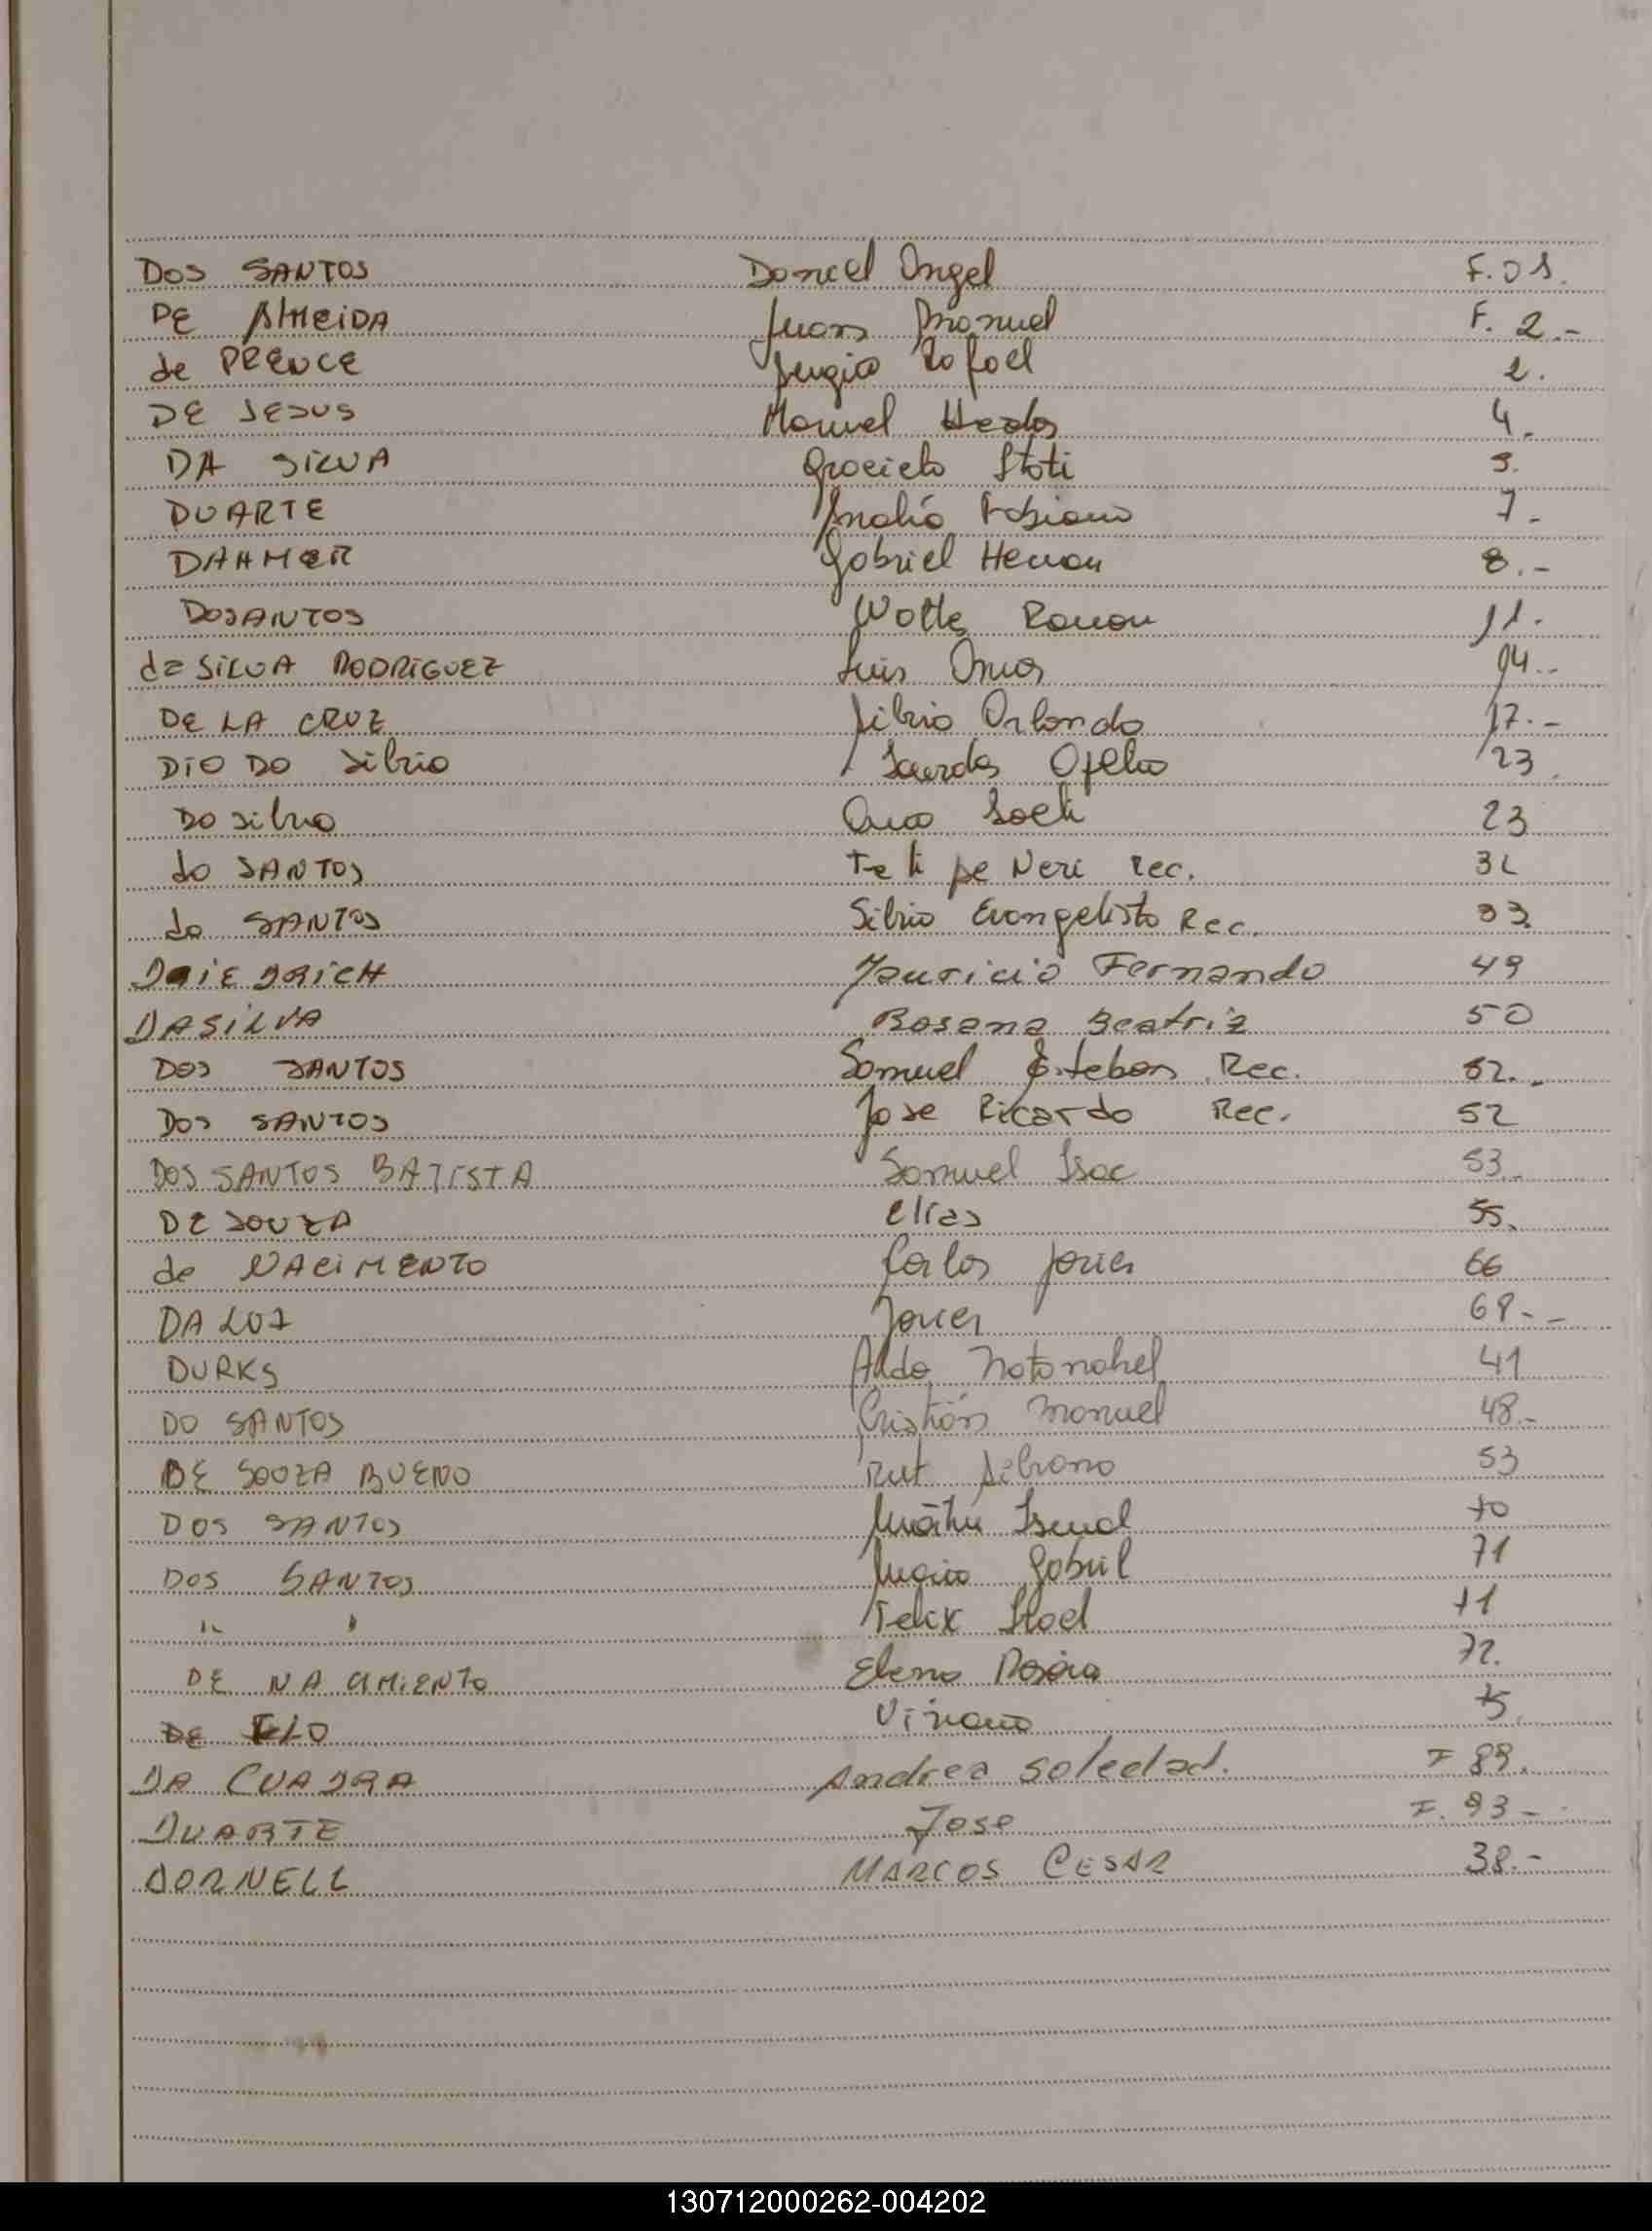 DOS SANTOS Daniel Angel F. 01.
DE ALMEIDA Juan Manuel F. 2.-
de PRENCE Sergio Rafael 2.
DE JESUS Manuel 4.
DA SILVA Graciela 5.
DUARTE Analía Fabiana 7.-
DAHMER Gabriel Hernan 8.-
DOSANTOS Walter Ramon 11.
da SILVA RODRIGUEZ Luis Omar 14.-
DE LA CRUZ Silvio Orlando 17.-
DIO DO Silvio Ofelia 23.
Do Silva Ana 23
do SANTOS Felipe Neri Rec. 32
do SANTOS Silvio Evangelista Rec. 33.
DIEDRICH Mauricio Fernando 49
DASILVA Rosana Beatriz 50
DOS SANTOS Samuel Esteban Rec. 52.-
DOS SANTOS Jose Ricardo Rec. 52
DOS SANTOS BATISTA Samuel Isac 53.
DE SOUZA Elias 55.
de NACIMENTO Carlos Javier 66
DA LUZ Javier 68.-
DURKS Aldo Natanahel 41
DO SANTOS Cristián Manuel 48.-
DE SOUZA BUENO Rut 53
DOS SANTOS 70
DOS SANTOS Gabriel 71
" " Felix 71
DE NACIMIENTO Elena 72.
DE Viviana 75.
DA CUADRA Andrea Soledad. F 89.
DUARTE Jose F. 93-
DORNELL MARCOS CESAR 38.-
130712000262-004202